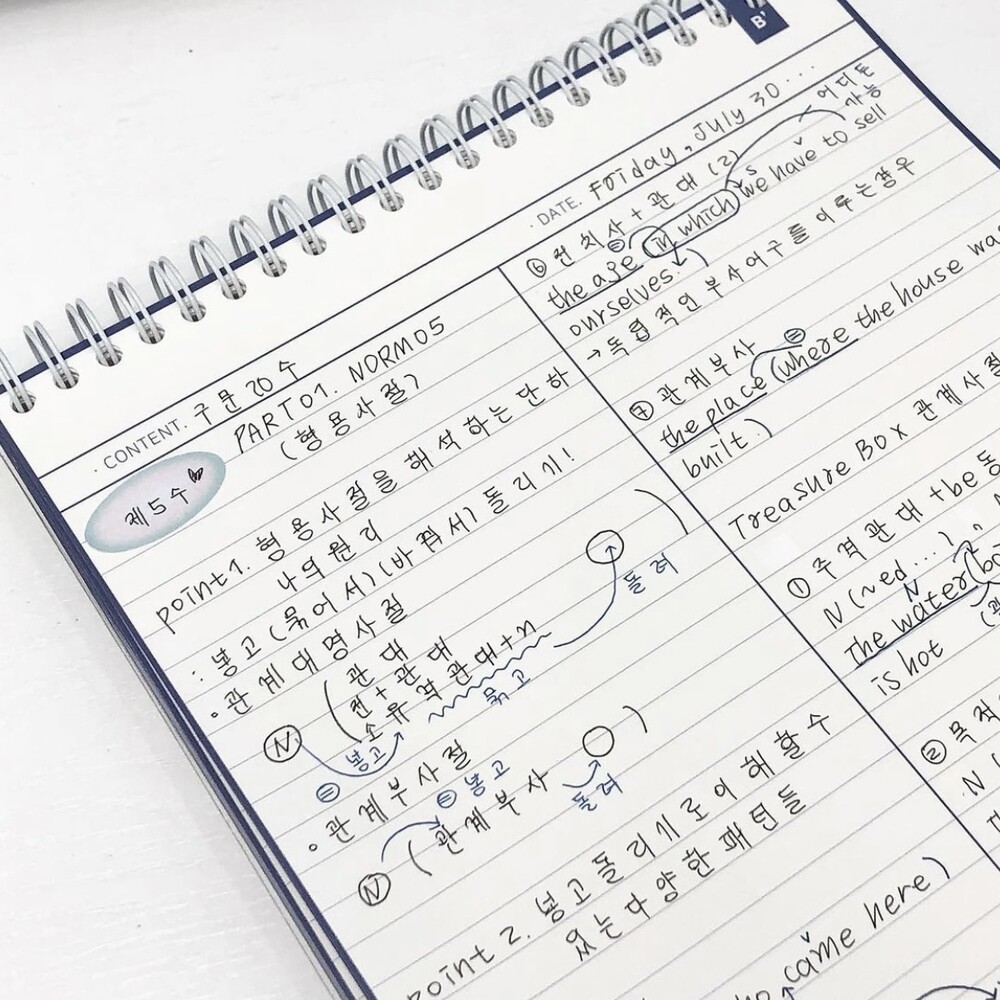 B'
DATE. Friday, July 30...
CONTENT. 구문 20 수
제 5 수
PART 01. NORM 05
(형용사절)
point1. 형용사절을 해석하는 단 하
나의 원리
: 넣고 (묶어서) (바꿔서) 돌리기!
◦ 관계대명사절
관대
전+관대
소유격 관대+n
N
묶고
돌려
= 넣고
◦ 관계부사절
= 넣고
N (관계부사 )
돌려
point 2. 넣고 돌리기로 이해할 수
있는 다양한 패턴들
came here)
어디든
가능
⑥ 전치사+관대 (2)
=
the age (in which we have to sell
s v
ourselves.)
→ 독립적인 부사어구를 이루는 경우
⑦ 관계부사
=
the place (where the house wa
built.)
Treasure Box 관계사절
① 주격관대 +be동
N (~ed...)
N
The water (bo
is hot
② 목적
N (